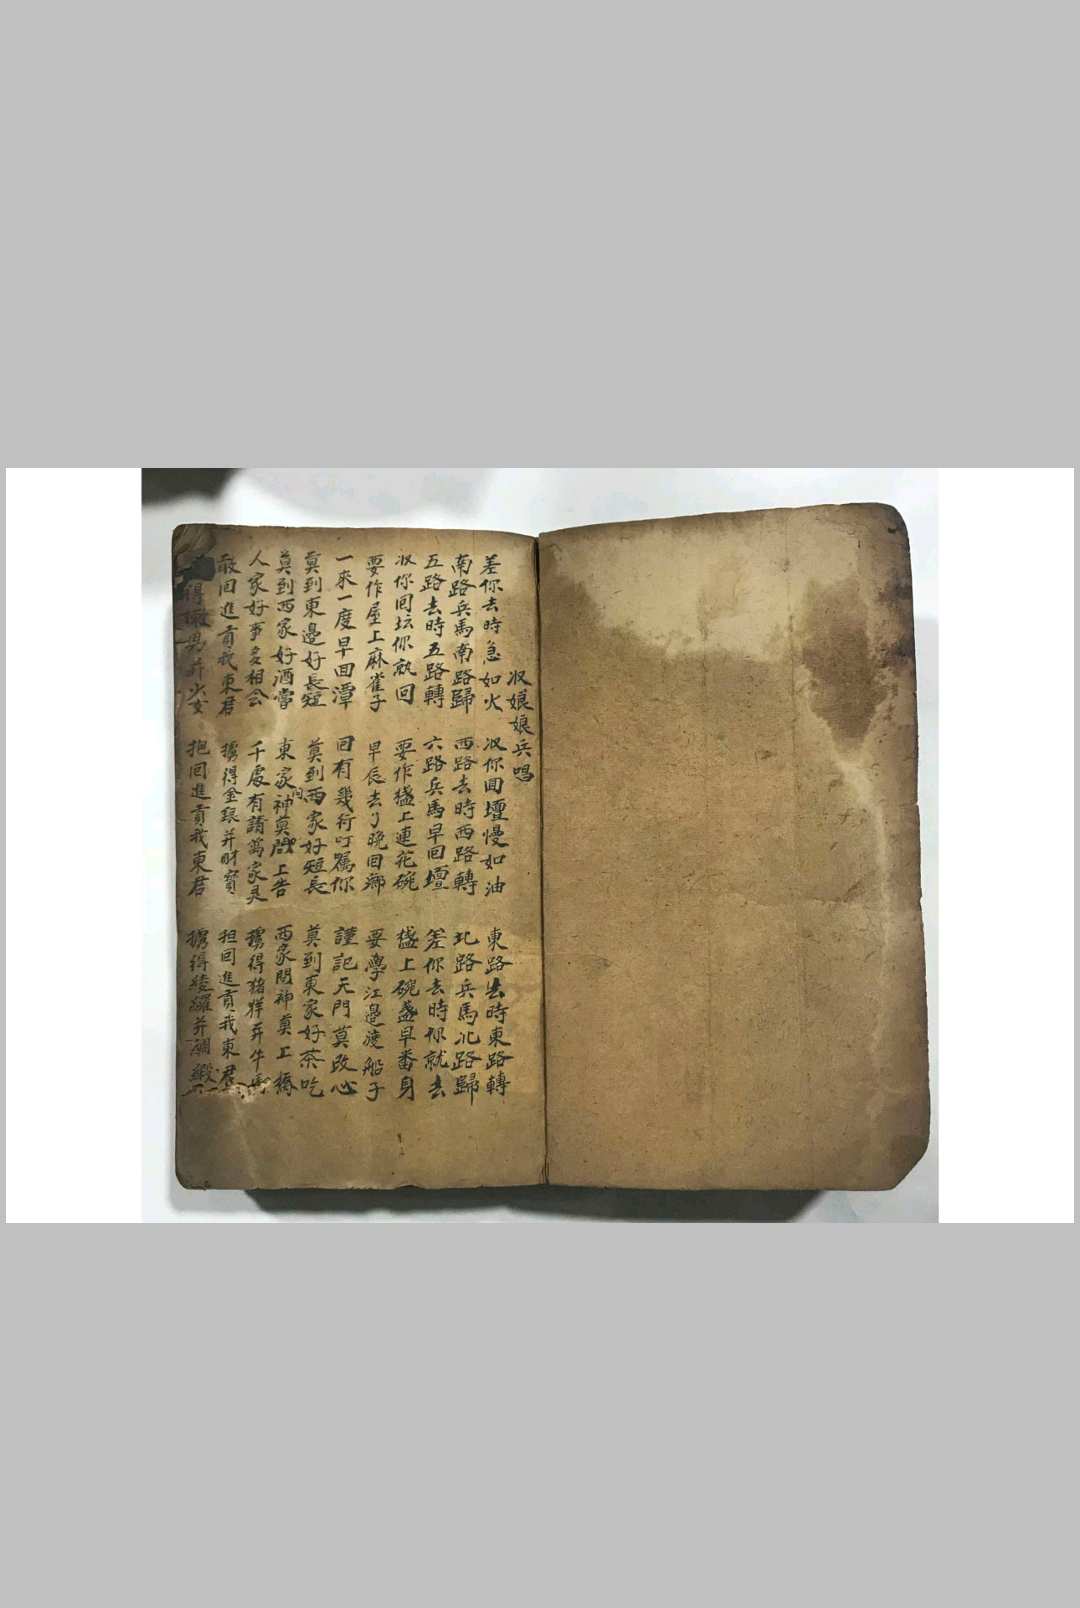 収娘娘兵唱
差你去時急如火 収你囬壇慢如油 東路去時東路轉
南路兵馬南路歸 西路去時西路轉 北路兵馬北路歸
五路去時五路轉 六路兵馬早回壇 差你去時你就去
収你囬坛你就回 要作盞上連花碗 盞上碗盞早番身
要作屋上麻雀子 早辰去了晚回鄉 要學江邊渡船子
一來一度早囬潭 囬有幾行叮囑你 謹記天門莫改心
莫到東邊好長短 莫到西家好短長 莫到東家好茶吃
莫到西家好酒當 東家問神莫上告 西家問神莫上橋
人家好事多相会 千處有請萬家灵 擄得猪羊并牛馬
敢回進貢我東君 擄得金銀并財寳 担回進貢我東君
得 男并少女 抱回進貢我東君 擄得綾羅并綢緞